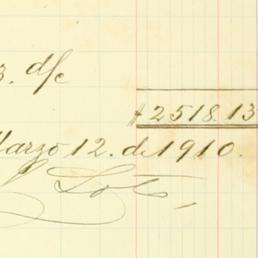 3. d/c
$2518.13
Marzo 12. de 1910.